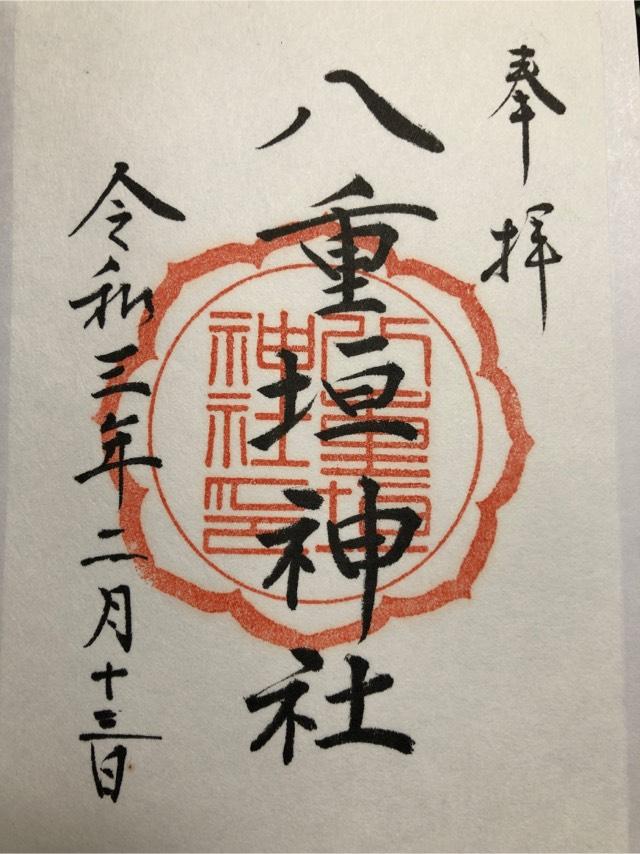 奉拝
八重垣神社
八重垣
神社印
令和三年二月十三日